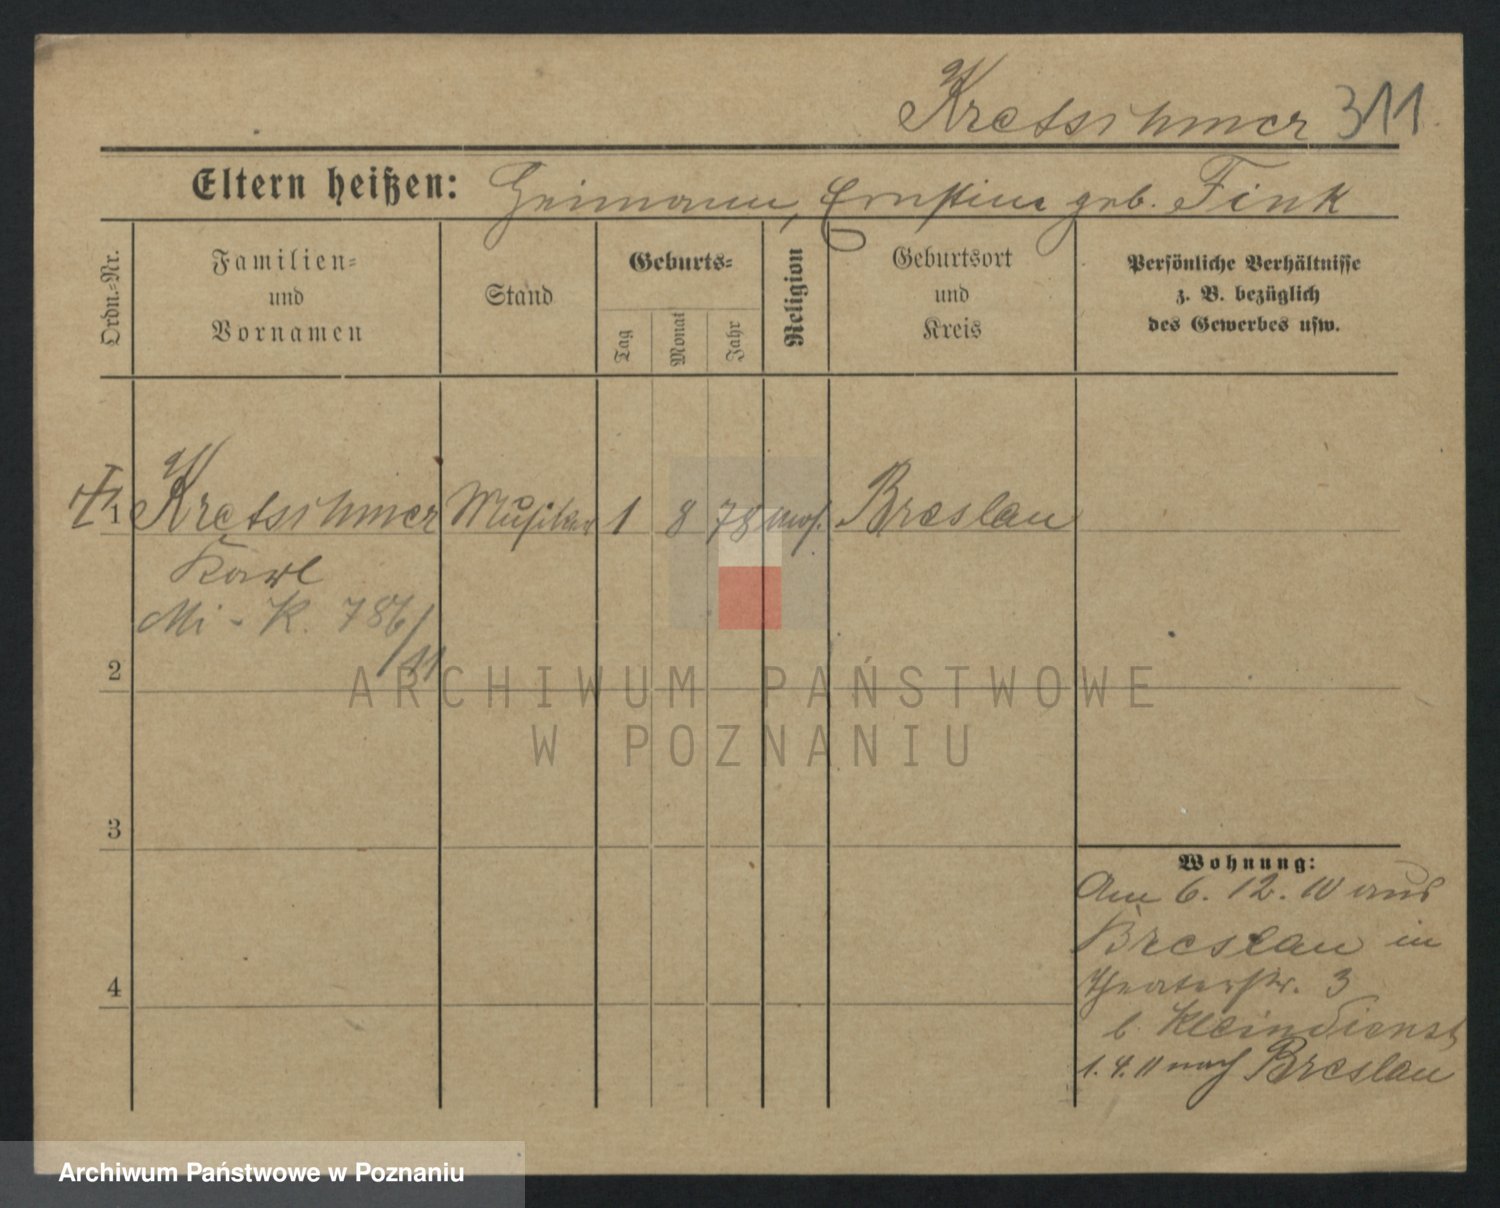 Kretschmer 311.
Eltern heißen: Heimann, Ernstine geb. Fink
Ordn.-Nr.
Familien-
und
Vornamen
Stand
Geburts-
Tag
Monat
Jahr
Religion
Geburtsort
und
Kreis
Persönliche Verhältnisse
z. B. bezüglich
des Gewerbes usw.
1 Kretschmer Musiker 1 8 78 mos. Breslau
Karl
Mi - K. 786/11
2
3
4
Wohnung:
Am 6. 12. 10 aus
Breslau in
Theaterstr. 3
b. Kleindienst
1. 4. 11 nach Breslau
ARCHIWUM PAŃSTWOWE
W POZNANIU
Archiwum Państwowe w Poznaniu